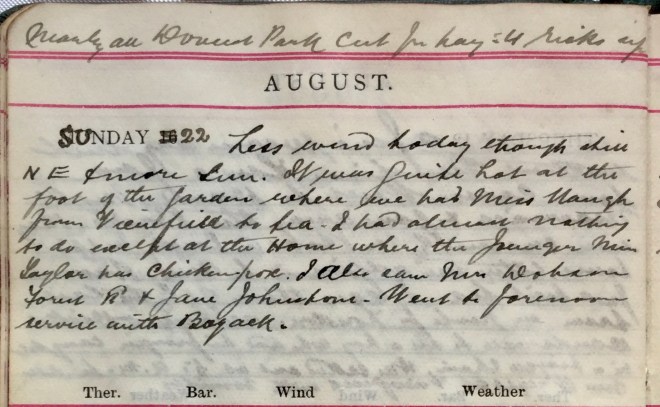 Nearly all Park Cut for hay = 4 ricks up
AUGUST.
SUNDAY 16 22 Less wind today though still
N E & more Sun. It was quite hot at the
foot of the Garden where we had Miss Waugh
from to tea. I had almost nothing
to do except at the Home where the younger Miss
Taylor has Chicken pox. I also saw Mrs Dobson
Forest R & Jane Johnstone - Went to forenoon
service with
Ther. Bar. Wind Weather